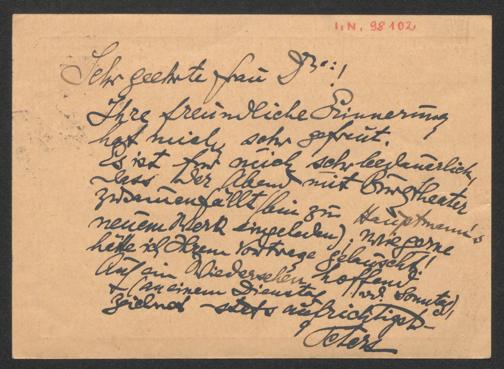 I.N. 98102
Sehr geehrte Frau Dr.!
Ihre freundliche Erinnerung
hat mich sehr gefreut.
Es ist für mich sehr bedauerlich,
dass der Abend mit Burgtheater
zusammenfällt (bin zu Hauptmann's
neuem Werk eingeladen), wie gerne
hätte ich Ihrem Vortrage gelauscht!
Auf ein Wiedersehen hoffend
+ (an einem Dienstag od. Sonntag),
zeichnet stets aufrichtigst